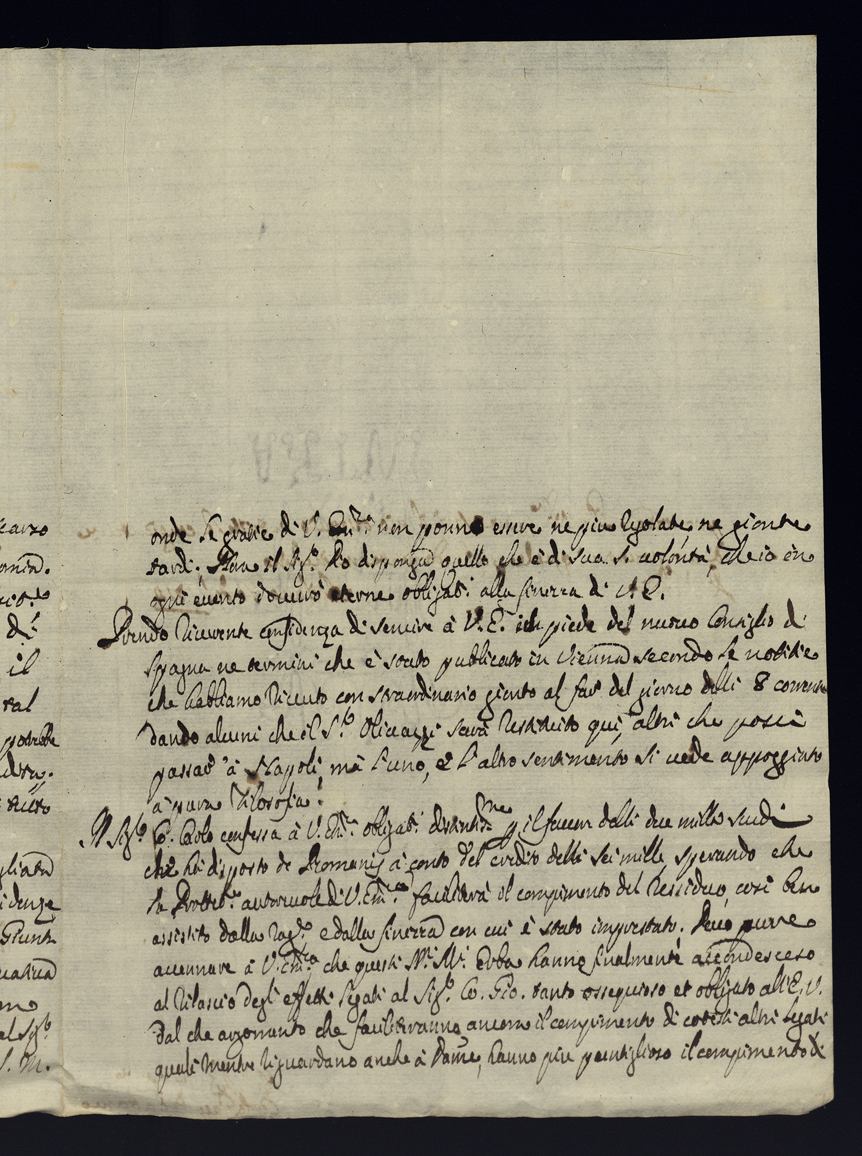 onde le gratie di V. Em.za non ponno essere ne piu regolate, ne gionte
tardi. Hora il Sig.r Dio disponga quello che è di sua S. volontà, che io in
ogni evento doverò eterne obligat.i alla finezza di V. E.
Prendo riverente confidenza di servire à V. E. del piede del nuovo Consiglio di
Spagna ne termini che è stato publicato in Vienna secondo le notitie
che habbiamo ricevuto con straordinario gionto al far del giorno delli 8 corrente
dando alcuni che il S.r Olivazzi sarà restituito qui, altri che possa
passar à Napoli, mà l'uno, e l'altro sentimento si vede appoggiato
à pura filosofia.
Il Sig.r Co. Carlo confessa à V. Em. obligat.i distintis.me p il favor delli due mille scudi
che hà disposto de Romanis à conto del credito delli sei mille, sperando che
la Prottet.e autorevole di V. Em.za faciliterà il compimento del residuo, così ben
assistito dalla rag.e e dalla finezza con cui è stato imprestato. Devo pure
accennare à V. Em.za che questi Sri. Mri. Erba hanno finalmente accondesceso
al rilascio degl'effetti legati al Sig.r Co. Gio. tanto ossequioso et obligato all'E. V.
dal che argomento che faciliteranno ancora il compimento di cotesti altri legati
quali mentre riguardano anche à Dame, hanno piu puntiglioso il compimento di
carzo
d.i
il
ral
potrebe
tutto
idenza
Giunta
al Sig.r
S. M.